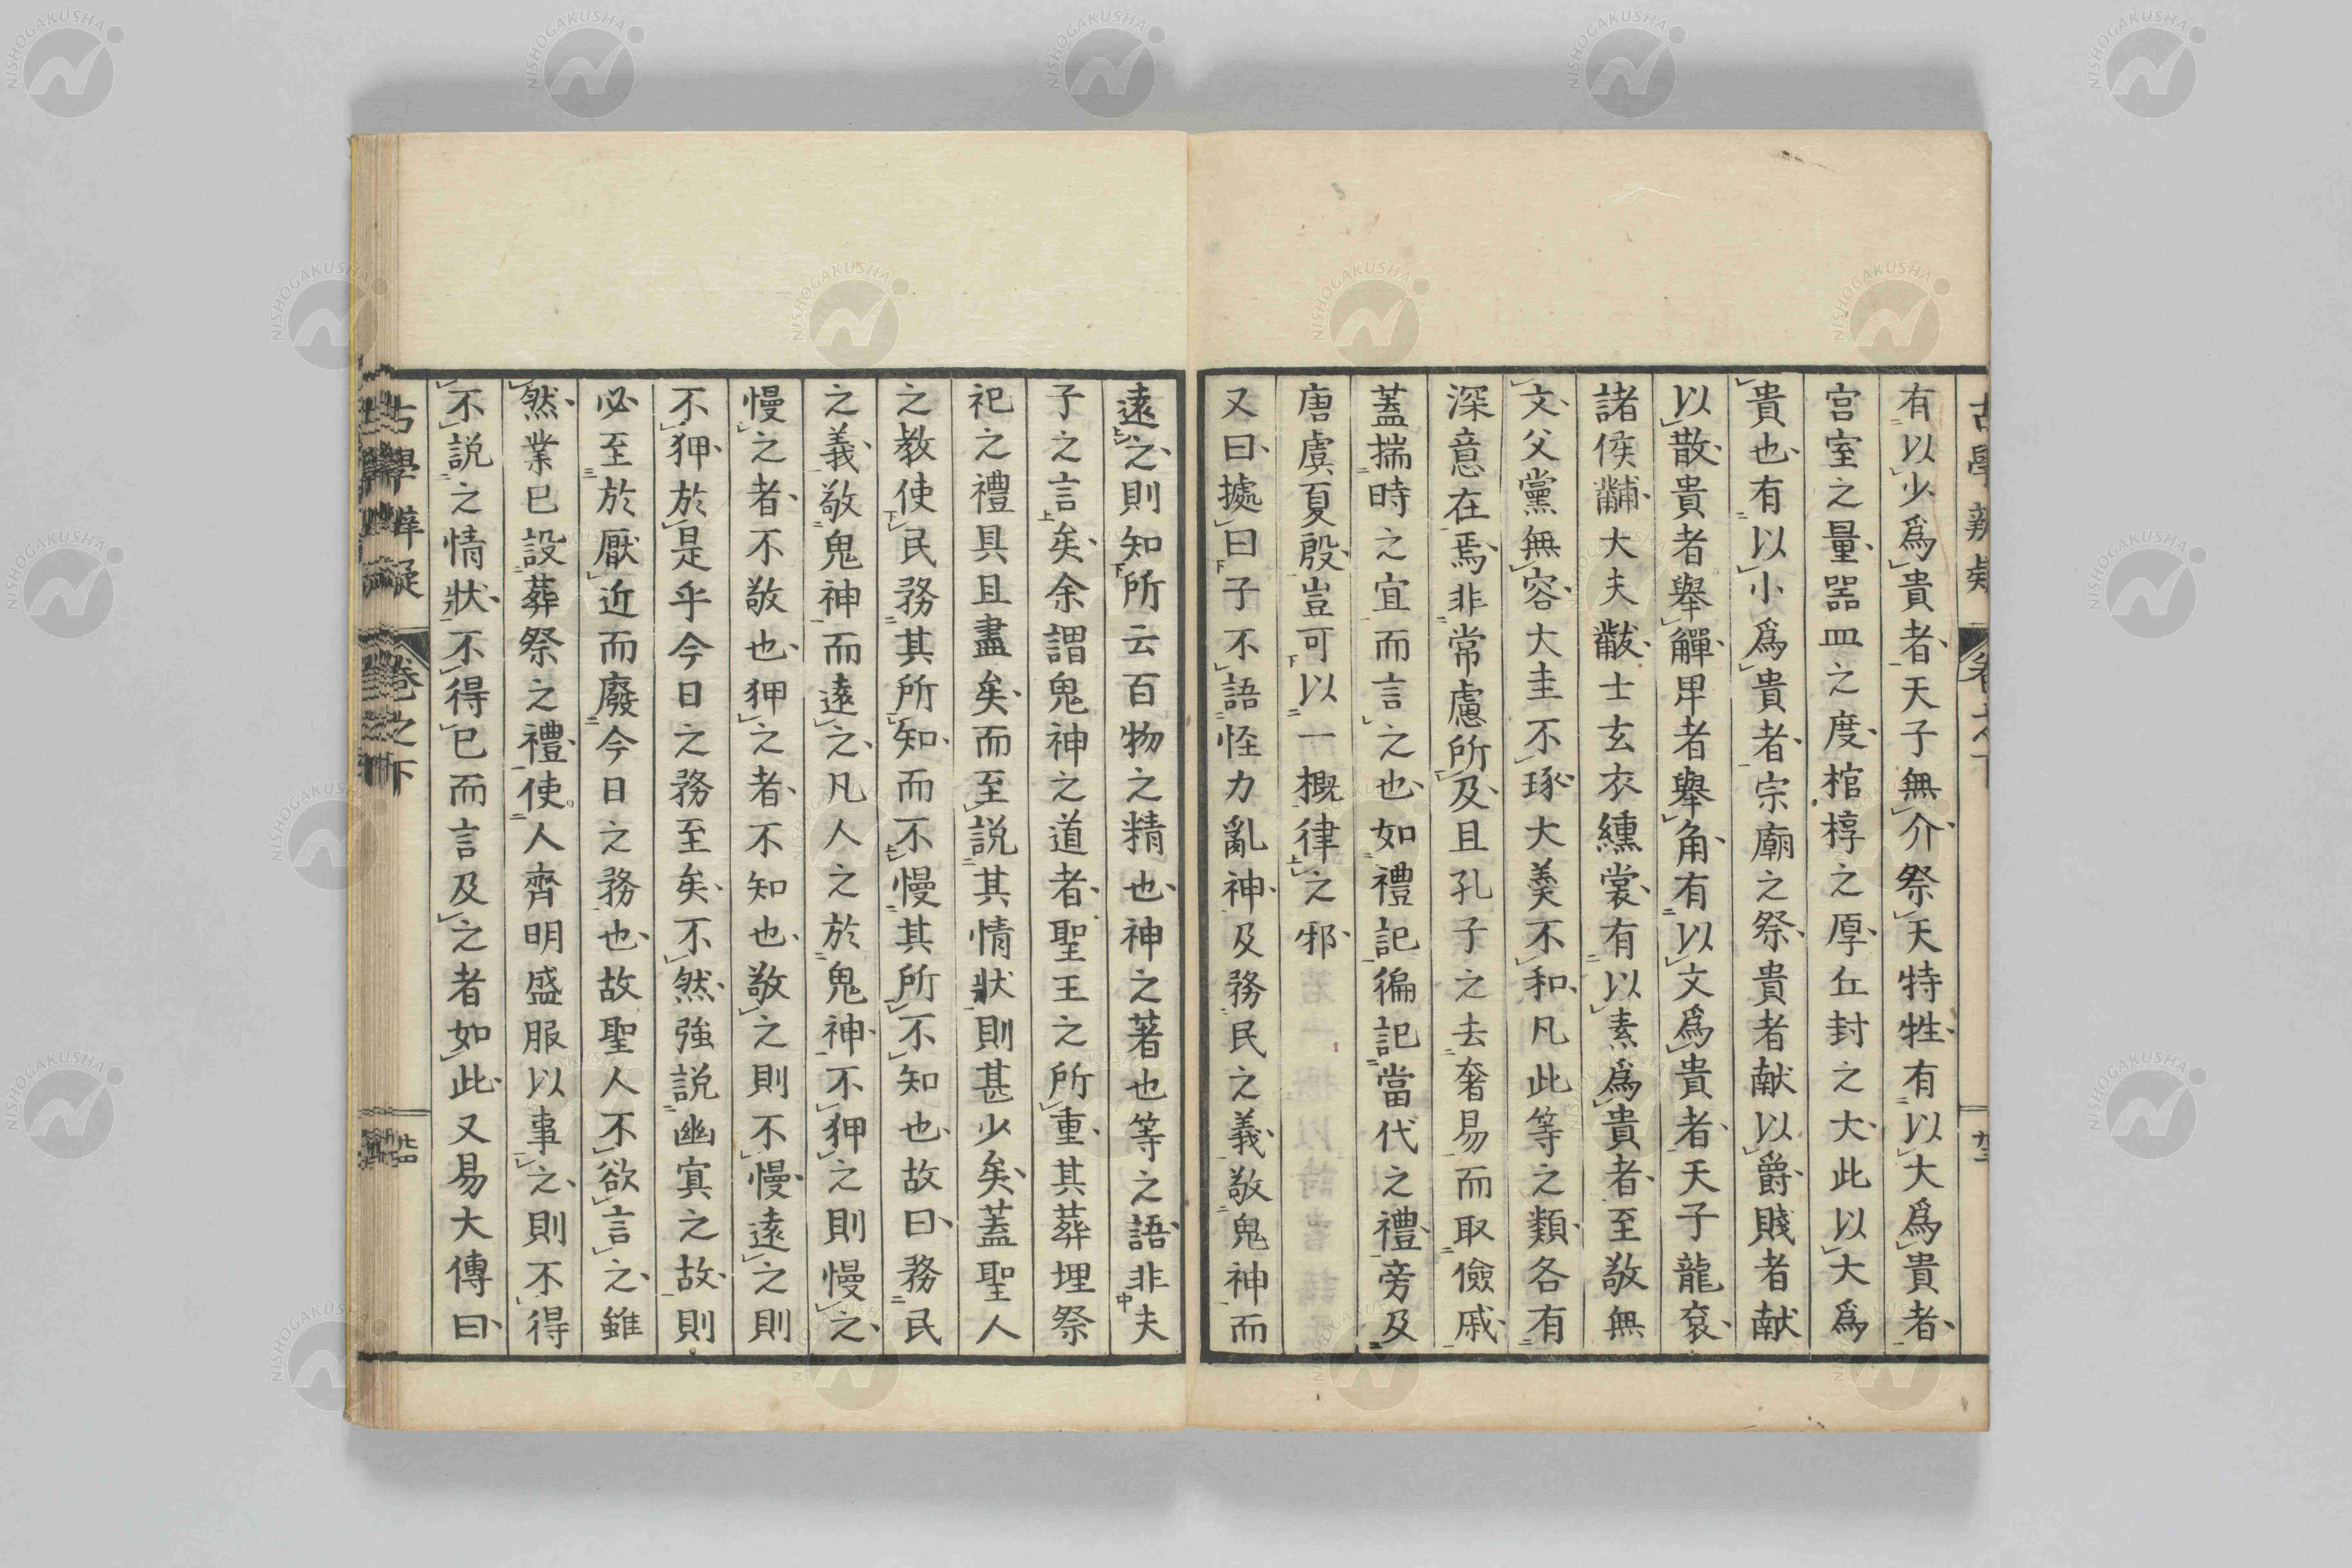 有以少爲貴者天子無介祭天特牲有以大爲貴者
宮室之量噐皿之度棺椁之厚丘封之大此以大爲
貴也有以小爲貴者宗廟之祭貴者献以爵賤者献
以散貴者舉觶卑者舉角有以文爲貴者天子龍衮
諸侯黼大夫黻士玄衣纁裳有以素爲貴者至敬無
文父黨無容大圭不琢大羹不和凡此等之類各有
深意在焉非常慮所及且孔子之去奢易而取儉戚
蓋揣時之宜而言之也如禮記徧記當代之禮旁及
唐虞夏殷豈可以一概律之邪
又曰據曰子不語怪力亂神及務民之義敬鬼神而
遠之則知所云百物之精也神之著也等之語非夫
子之言矣余謂鬼神之道者聖王之所重其葬埋祭
祀之禮具且盡矣而至說其情狀則甚少矣蓋聖人
之教使民務其所知而不慢其所不知也故曰務民
之義敬鬼神而遠之凡人之於鬼神不狎之則慢之
慢之者不敬也狎之者不知也敬之則不慢遠之則
不狎於是乎今日之務至矣不然強説幽冥之故則
必至於厭近而廢今日之務也故聖人不欲言之雖
然業已設葬祭之禮使人齊明盛服以事之則不得
不説之情狀不得已而言及之者如此又易大傳曰
古學辨疑
卷之下
NISHOGAKUSHA